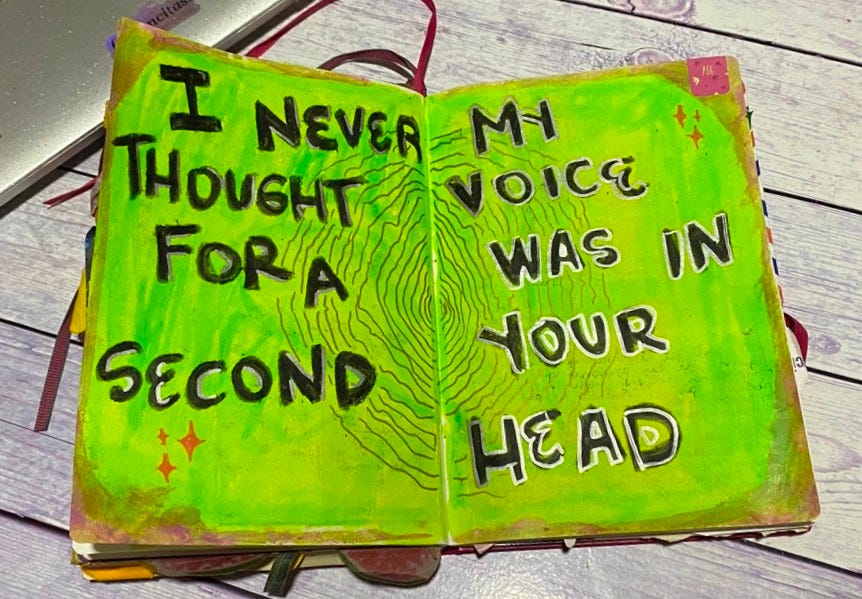 I NEVER
THOUGHT
FOR A
SECOND
MY
VOICE
WAS IN
YOUR
HEAD